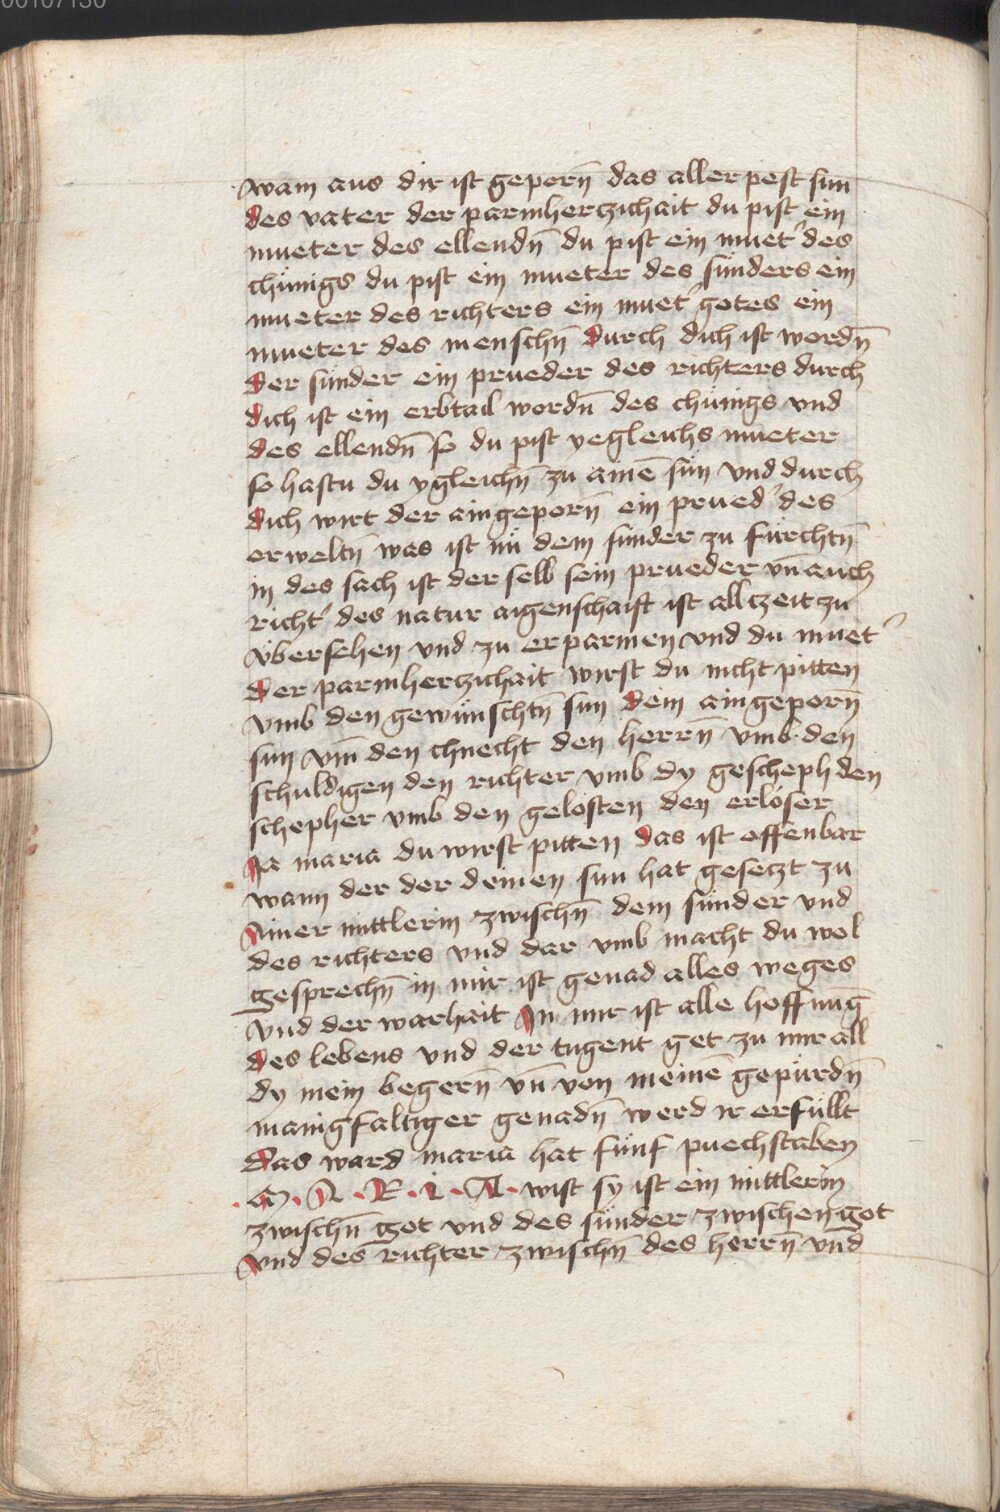 00107130
wann aus dir ist geporn̄ das aller pest sun
des vater der parmherczichait du pist ein
mueter des ellendn̄ du pist ein muet' des
chünigs du pist ein mueter des sünders ein
mueter des richters ein muet' gotes ein
mueter des menschn̄ durch dich ist wordn̄
der sünder ein prueder des richters durch
dich ist ein erbtail wordn̄ des chünigs vnd
des ellendn̄ so du pist yegleichs mueter
so hastu du ygleichn̄ zu ainē sün vnd durch
dich wirt der aingeporn̄ ein prued' des
erweltn̄ was ist nü dem sünder zu fürchtn̄
in des sach ist der selb sein prueder vn̄ auch
richt' des natur aigenschafft ist allczeit zu
vbersehen vnd zu erparmen vnd du muet'
der parmherczichait wirst du nicht pitten
vmb den gewünschtn̄ sun dein aingeporn̄
sun vm̄ den chnecht den herrn̄ vmb den
schuldigen den richter vmb dy gescheph den
schepher vmb den gelösten den erlöser
Ja maria du wirst pitten das ist offenbar
wann der der deinen sun hat gesetzt zu
Ainer mittlerin zwischn̄ dem sünder vnd
des richters vnd dar vmb macht du wol
gesprechn̄ in mir ist genad alles weges
vnd der warhait In mir ist alle hoffnung
des lebens vnd der tugent get zu mir all
dy mein begern̄ vn̄ von meinē gepürdn̄
manigfaltiger genadn̄ werd ir erfüllt
das ward maria hat fünf puechstaben
· M · A · R · I · A · wist sy ist ein mittlerin
zwischn̄ got vnd des sünder zwischen got
vnd des richter zwischn̄ des herrn̄ vnd